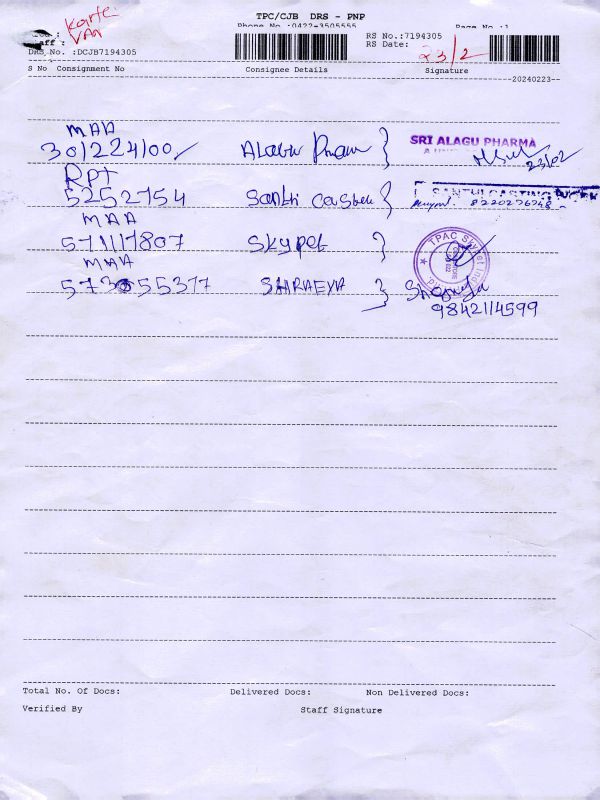 Karte
VAN
TPC/CJB DRS - PNP
Phone No.:0422-3505555
Page No.:1
Staff :
DRS No. :DCJB7194305
RS No.:7194305
RS Date:
23/2
S No Consignment No Consignee Details Signature
20240223
MAA
30/224/00/ Alagu SRI ALAGU PHARMA
23/02
RPT
5252754 Santhi SANTHI CASTING
8220276748
MAA
571117807 SKYPET TPAC
MAA
573055377
9842114599
Total No. Of Docs: Delivered Docs: Non Delivered Docs:
Verified By Staff Signature